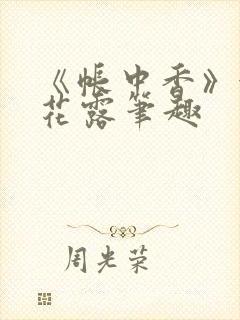 《帳中香》
花露筆趣
周光荣